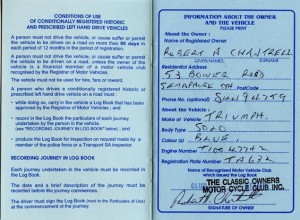 CONDITIONS OF USE
OF CONDITIONALLY REGISTERED HISTORIC
AND PRESCRIBED LEFT HAND DRIVE VEHICLES
A person must not drive the vehicle, or cause or permit
the vehicle to be driven on a road on more than 90 days in
each period of 12 months in the period of registration.
A person must not drive the vehicle, or cause or permit the
vehicle to be driven on a road, unless the owner of the
vehicle is a financial member of a motor vehicle club
recognised by the Registrar of Motor Vehicles.
The vehicle must not be used for hire, fare or reward.
A person who drives a conditionally registered historic or
prescribed left hand drive vehicle on a road must:
• while doing so, carry in the vehicle a Log Book that has been
approved by the Registrar of Motor Vehicles ; and
• record in the Log Book the particulars of each journey
undertaken by the person in the vehicle.
(see "RECORDING JOURNEY IN LOG BOOK" below) ; and
• produce the Log Book for inspection on request made by a
member of the police force or a Transport SA Inspector.
RECORDING JOURNEY IN LOG BOOK
Each journey undertaken in the vehicle must be recorded
in the Log Book.
The date and a brief description of the journey must be
recorded before the journey commences.
The driver must sign the Log Book (next to the Particulars of Use)
at the commencement of the journey.
INFORMATION ABOUT THE OWNER
AND THE VEHICLE
PLEASE PRINT
About the Owner:
Name of Registered Owner
ROBERT A CHANTRELL
GIVEN NAMES SURNAME
Residential Address
53 BOWER ROAD
SEMAPHORE STH POSTCODE
Phone No. (optional)
About the Vehicle:
Make of Vehicle TRIUMPH
Body Type SOLO
Colour (s) BLUE
Engine No.
Registration Plate Number
Name of Recognised Motor Vehicle Club
which issued the Log Book
THE CLASSIC OWNERS
MOTOR CYCLE CLUB INC.
SIGNATURE OF OWNER